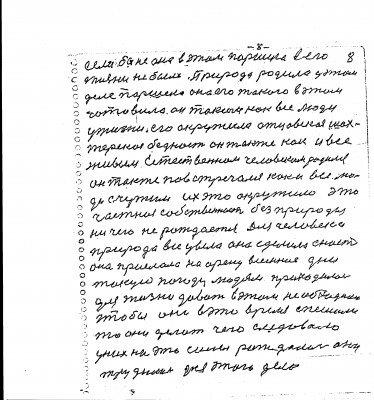 - 8 -
8
если бы не она в этом парнина в его
жизни не было. Природа родила у этом
деле парщела она его такого в этом
готовила он таким как все люди
у жизни его окружила отцовская шах-
терская бедность он также как и все
живым Естественным человеком родился
он также повстречался как и все лю-
ди с чужим их это окружило это
частная собственность без природы
ни чего не рождается Для человека
природа все увела она сделала
она прислала на арену весенние дни
такую погоду людям приходилось
для жизни давать в этом необходимо
чтобы они в это время спешили
то они делают чего следовало
у них на это силы рождались они
трудились для этого дела